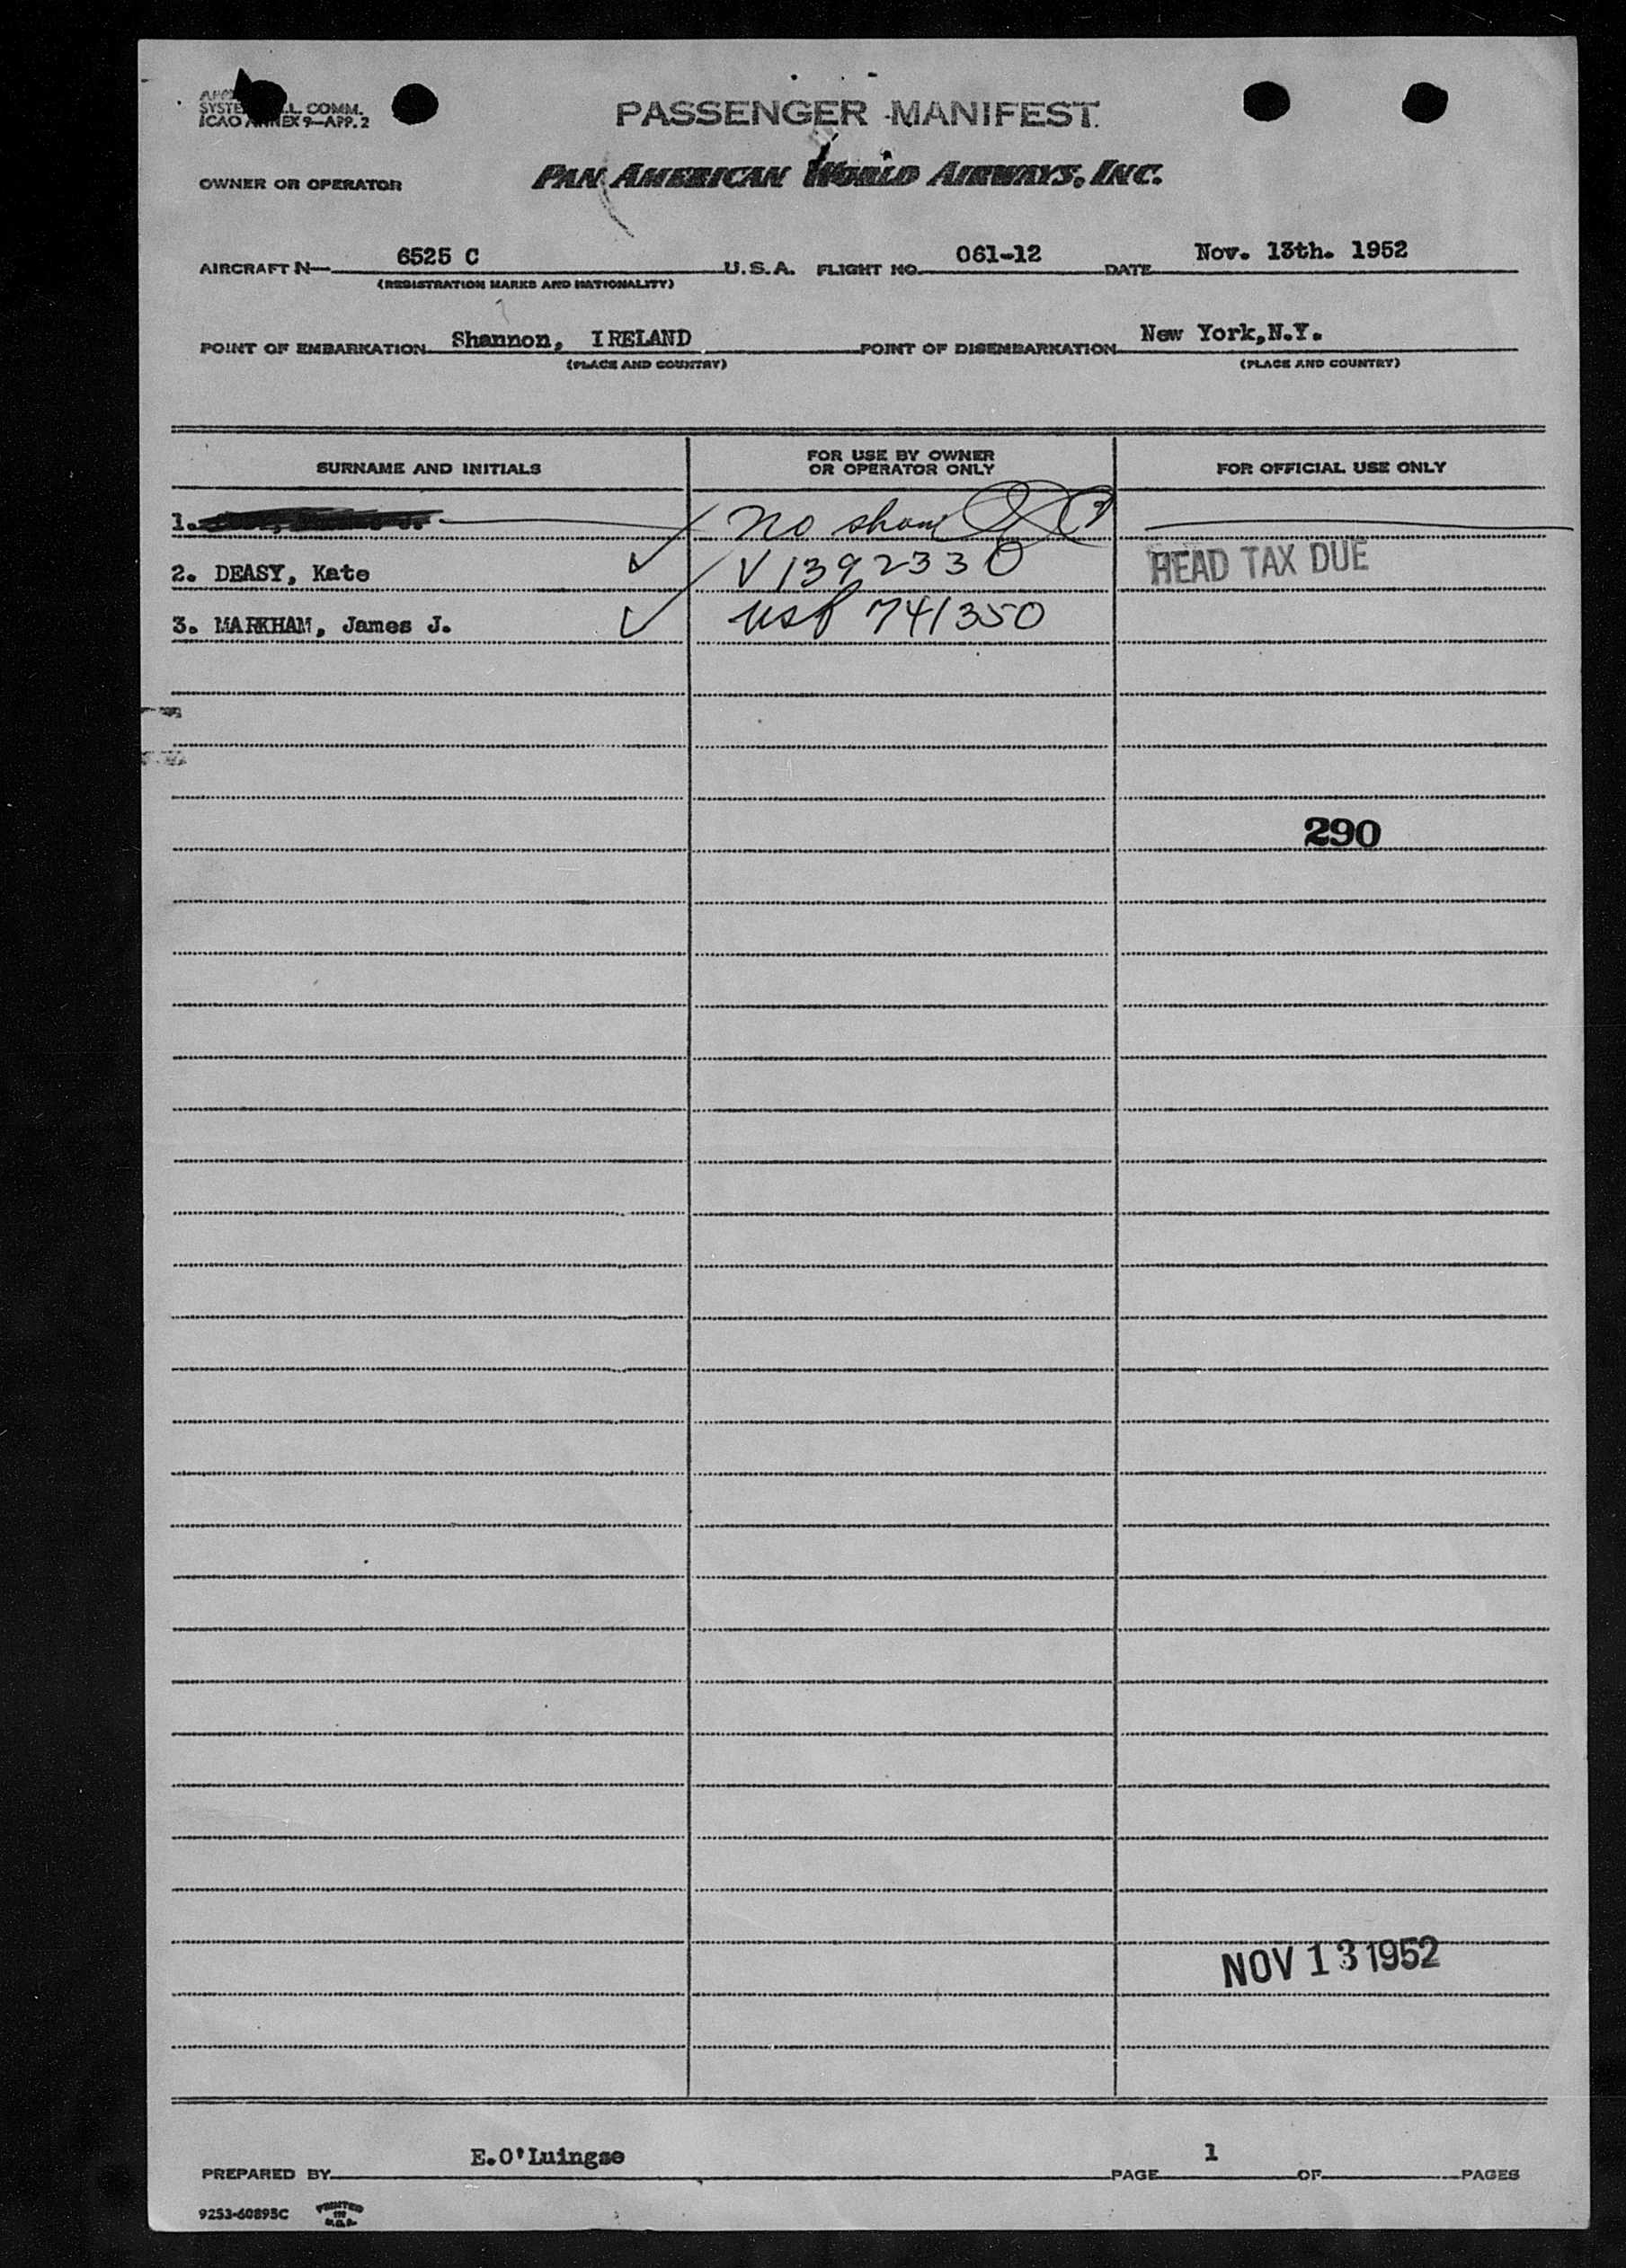 PASSENGER MANIFEST
L. COMM.
ICAO ANNEX 9—APP. 2
OWNER OR OPERATOR PAN AMERICAN WORLD AIRWAYS, INC.
AIRCRAFT N— 6525 C U.S.A. FLIGHT NO. 061-12 DATE Nov. 13th. 1952
(REGISTRATION MARKS AND NATIONALITY)
POINT OF EMBARKATION Shannon, IRELAND POINT OF DISEMBARKATION New York,N.Y.
(PLACE AND COUNTRY) (PLACE AND COUNTRY)
SURNAME AND INITIALS FOR USE BY OWNER OR OPERATOR ONLY FOR OFFICIAL USE ONLY
1. No show
2. DEASY, Kate V 1392330 HEAD TAX DUE
3. MARKHAM, James J. USP 741350
290
NOV 13 1952
PREPARED BY E.O'Luingse PAGE 1 OF PAGES
9253-60895C PRINTED IN U.S.A.